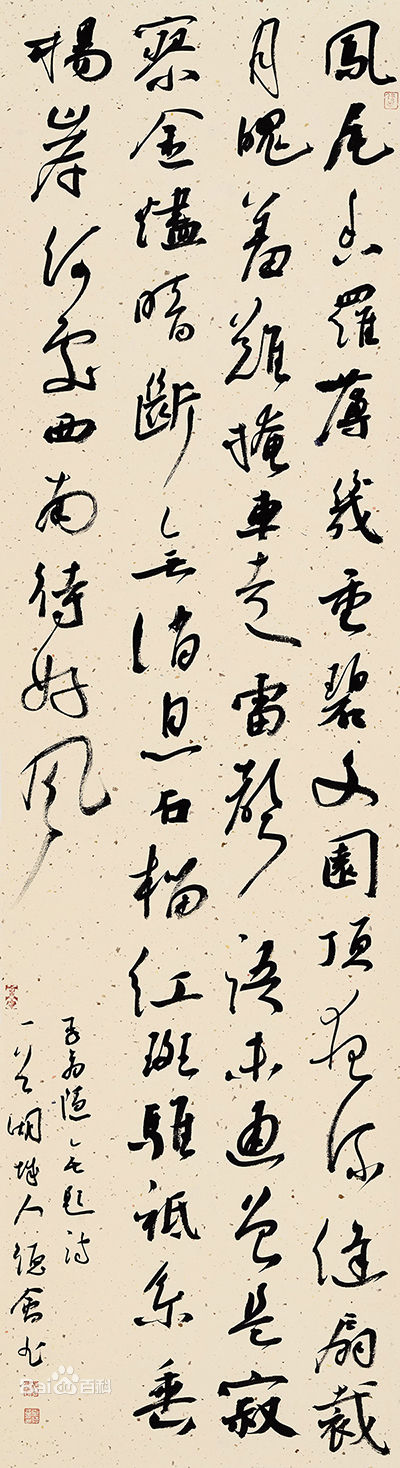 鳳尾香羅薄幾重碧文園頂夜深縫扇裁
月魄羞難掩車走雷聲語未通曾是寂
寥金燼暗斷無消息石榴紅斑騅祗系垂
楊岸何處西南待好風
李商隱無題詩
湖城人德書
Bai百科